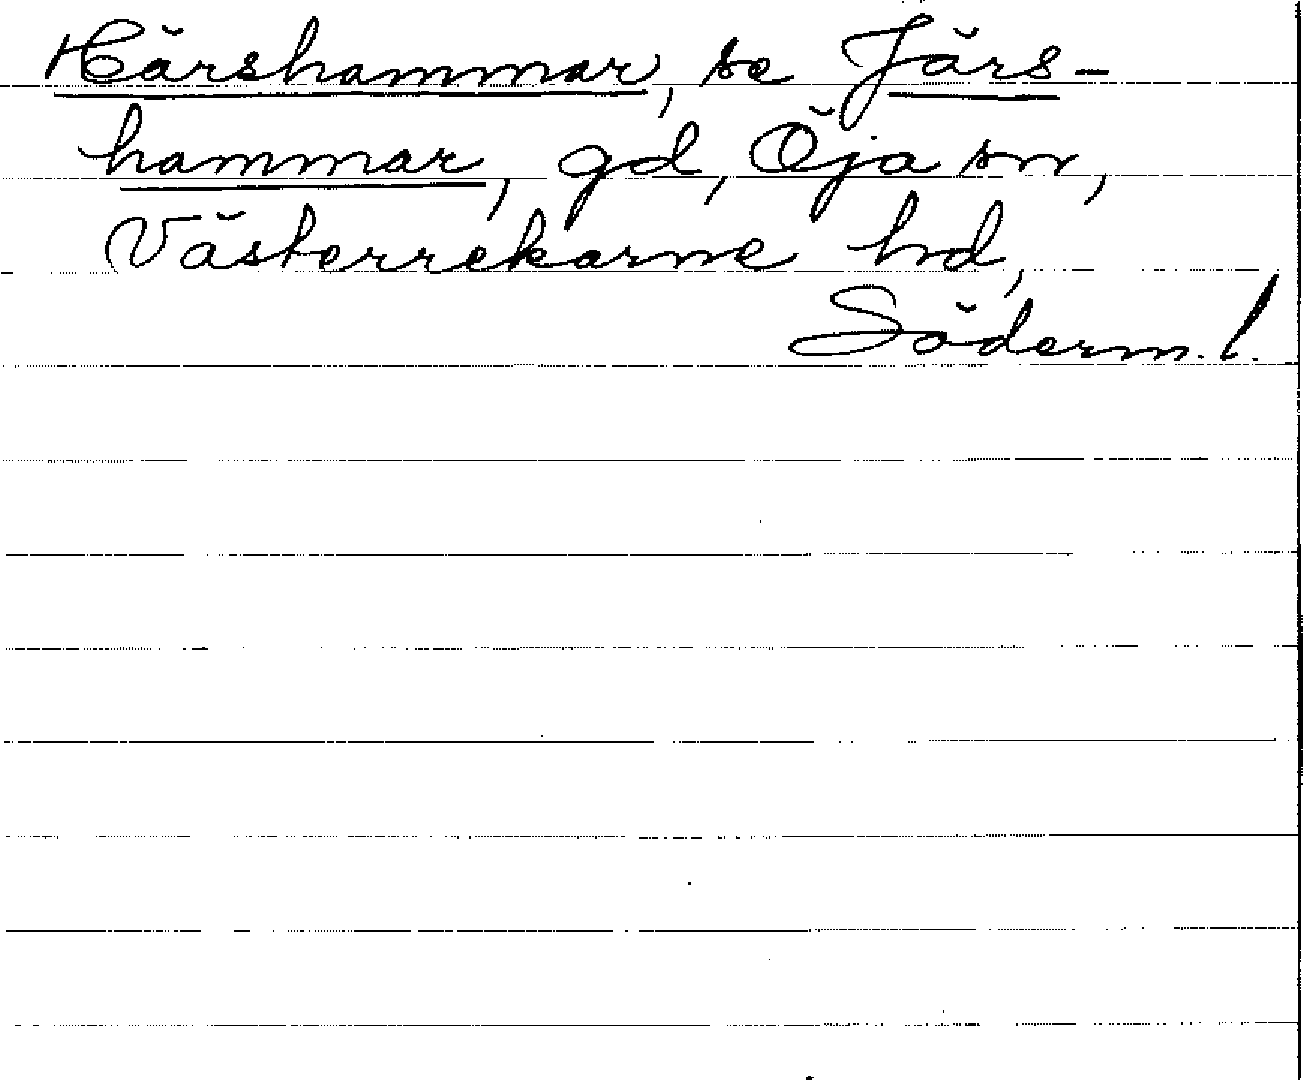 Härshammar, se Järs-
hammar, gd, Öja sn,
Västerrekarne hd,
Söderm. l.